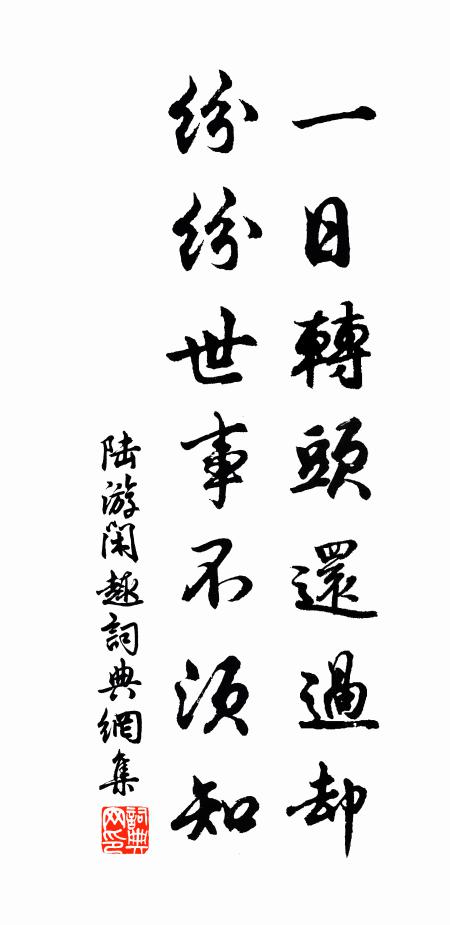 一日轉頭還過却
紛紛世事不須知
陆游閑趣詞典網集
詞典网印